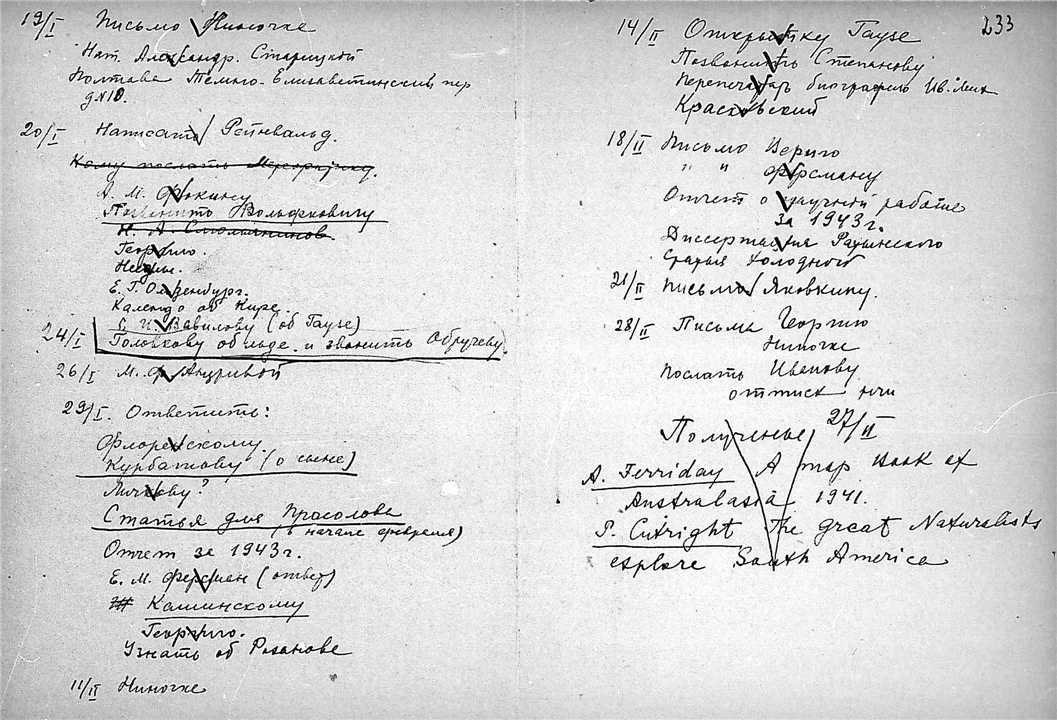 19/I Письмо Ниночке
Нат. Александр. Старицкой
Полтава Темно-Елизаветинский пер
д№10.
20/I Написать Рейнвальд.
Кому послать
А. М. Фокину
Позвонить Вольфковичу
Н. А. Смольянинов.
Георгию.
Е. Г. Ольденбург.
об Кире.
С. И. Вавилову (об Гаузе)
24/I Головкову об льде. и звонить Обручеву
26/I М. Ф. Андреевой
29/I. Ответить:
Флоренскому
Курбатову (о сыне)
Личкову?
Статья для Прасолова
(в начале февраля)
Отчет за 1943 г.
Е. М. Ферсман (ответ)
Кашинскому
Георгию.
Узнать об Розанове
11/II Ниночке
233
14/II Открытку Гаузе
Позвонить Степанову
биографию Ив.
Красковский
18/II Письмо Вериго
" " Ферсману
Отчет о научной работе
за 1943 г.
Диссертация
Статья Холодного
21/II Письмо Яковкину.
28/II Письма Георгию
Ниночке
Послать Иванову
оттиск
Полученье 27/II
A. Ferriday A map book of
Australasia 1941.
P. Cutright The great Naturalists
explore South America